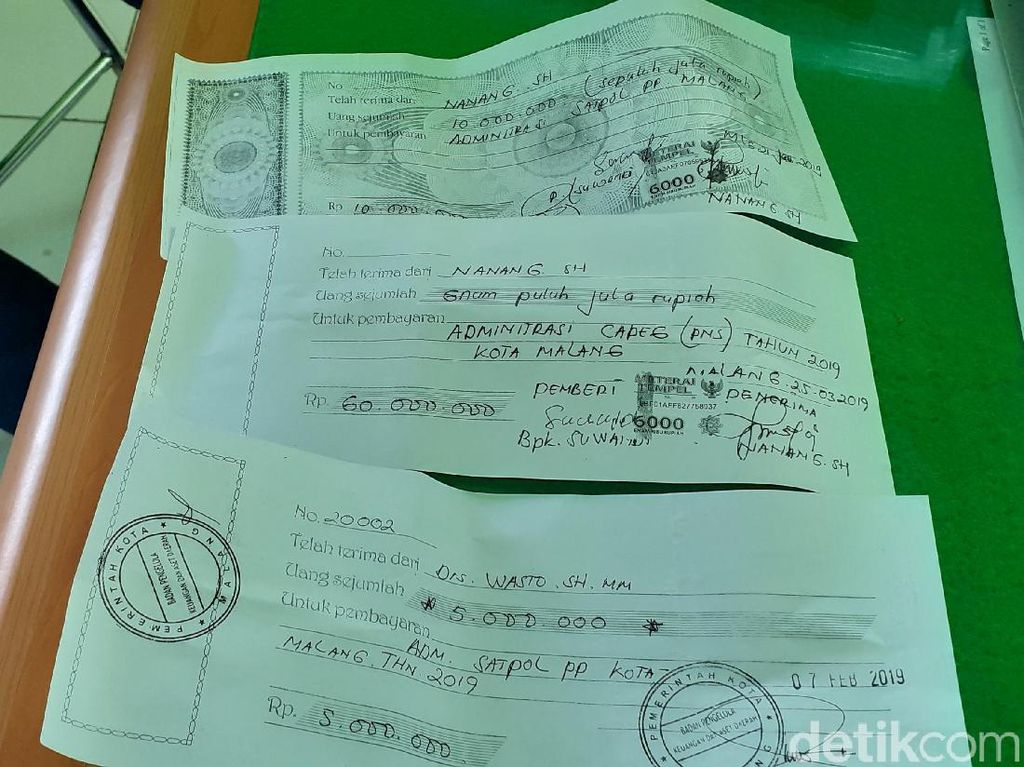 No
Telah terima dari NANANG. SH
Uang sejumlah 10.000.000.- (sepuluh juta rupiah)
Untuk pembayaran ADMINITRASI SATPOL PP MALANG
2019
METERAI TEMPEL
6000
Rp 10.000.000
NANANG. SH
No.
Telah terima dari NANANG. SH
Uang sejumlah Enam puluh juta rupiah
Untuk pembayaran
ADMINITRASI CAPEG (PNS) TAHUN 2019
KOTA MALANG
MALANG. 25.03.2019
PEMBERI METERAI TEMPEL PENERIMA
6000
Rp. 60.000.000
Bpk. SUWA
NANANG. SH
No. 20002
Telah terima dari Drs. WASTO. SH. MM
Uang sejumlah * 5.000.000 *
Untuk pembayaran
ADM. SATPOL PP KOTA
MALANG. THN 2019
07 FEB 2019
Rp. 5.000.000
PEMERINTAH KOTA MALANG
BADAN PENGELOLA
KEUANGAN DAN ASET DAERAH
PEMERINTAH KOTA
BADAN PENGELOLA
KEUANGAN DAN ASET DAERAH
Page 1 of 1
detikcom